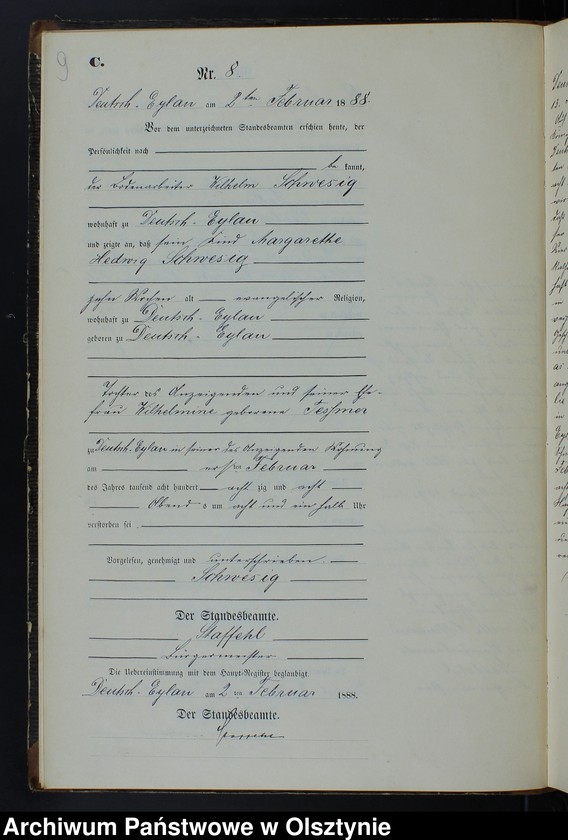 9
C.
Nr. 8.
Deutsch-Eylau am 2ten Februar 1888.
Vor dem unterzeichneten Standesbeamten erschien heute, der
Persönlichkeit nach
bekannt,
der Bodenarbeiter Wilhelm Schwesig
wohnhaft zu Deutsch-Eylau
und zeigte an, daß sein Kind Margarethe
Hedwig Schwesig
zehn Wochen alt evangelischer Religion,
wohnhaft zu Deutsch-Eylau
geboren zu Deutsch-Eylau
Tochter des Anzeigenden und seiner Ehe-
frau Wilhelmine geborene Tessmer
zu Deutsch-Eylau in seiner des Anzeigenden Wohnung
am ersten Februar
des Jahres tausend acht hundert acht zig und acht
Abends um acht und ein halb Uhr
verstorben sei
Vorgelesen, genehmigt und unterschrieben
Schwesig
Der Standesbeamte.
Staffehl
Bürgermeister
Die Uebereinstimmung mit dem Haupt-Register beglaubigt.
Deutsch-Eylau am 2ten Februar 1888.
Der Standesbeamte.
Archiwum Państwowe w Olsztynie